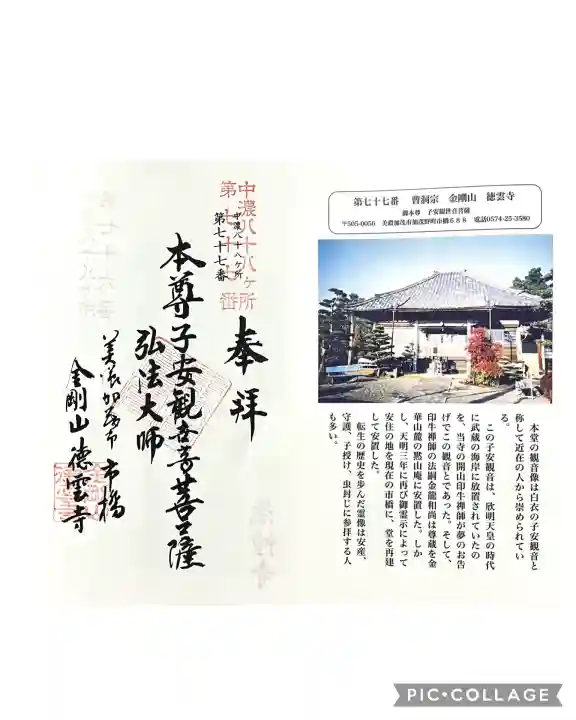 第七十七番　曹洞宗　金剛山　徳雲寺
御本尊　子安観世音菩薩
〒505-0056　美濃加茂市加茂野町市橋５８８　電話0574-25-3580
本堂の観音像は白衣の子安観音と
称して近在の人から崇められてい
る。
この子安観音は、欣明天皇の時代
に武蔵の海岸に放置されていたの
を、当寺の開山印牛禅師が夢のお告
げでこの観音とであった。そして、
印牛禅師の法嗣金龍和尚は尊蔵を金
華山麓の黙山庵に安置した。しか
し、天明三年に再び御霊示によって
安住の地を現在の市橋に、堂を再建
して安置した。
転生の歴史を歩んだ霊像は安産、
守護、子授け、虫封じに参拝する人
も多い。
奉拝
中濃八十八ヶ所
第七十七番
中濃八十八ヶ所
第七十七番
本尊子安観世音菩薩
弘法大師
美濃加茂市 市橋
金剛山徳雲寺
PIC•COLLAGE